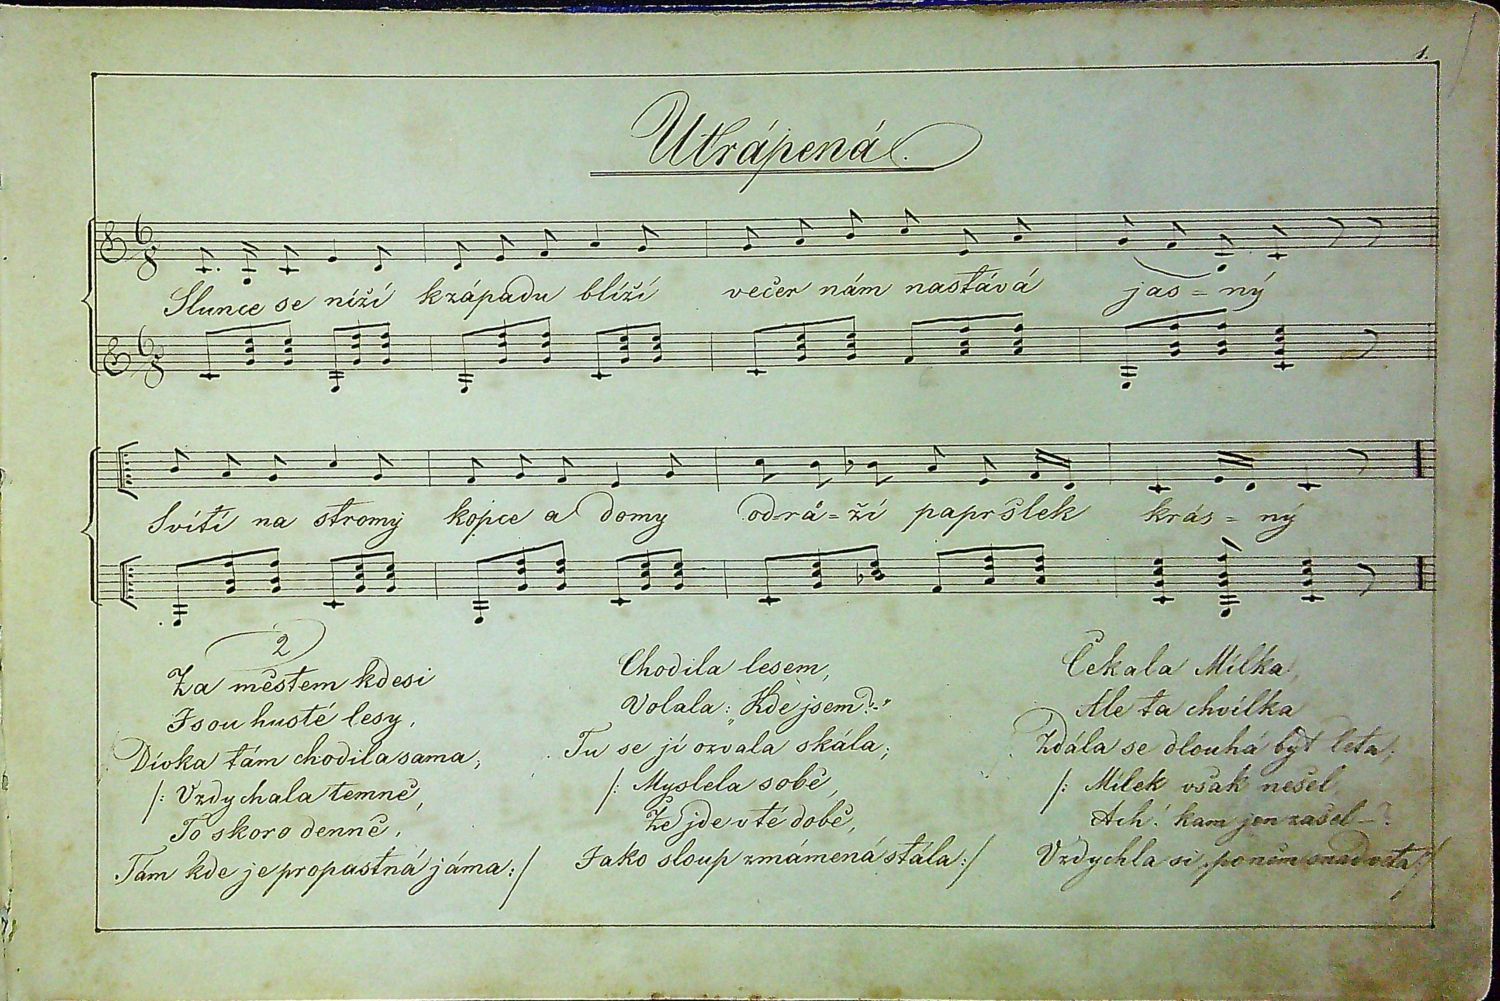 1.
Utrápená.
Slunce se níží kzápadu blíží večer nám nastává jas = ný
Svítí na stromy kopce a domy odrá = ží papršlek krás = ný
2
Za městem kdesi
Jsou husté lesy,
Dívka tám chodila sama,
/: Vzdychala temně,
To skoro denně,
Tám kde je propastná jáma :/
Chodila lesem,
Volala: „Kde jsem?"
Tu se jí ozvala skála;
/: Myslela sobě,
Že jde v té době,
Jako sloup zmámená stála :/
Čekala Milka,
Ale ta chvilka
Zdála se dlouhá být léta;
/: Milek však nešel,
Ach! kam jen zašel –?
Vzdychla si, poněm snad veta :/